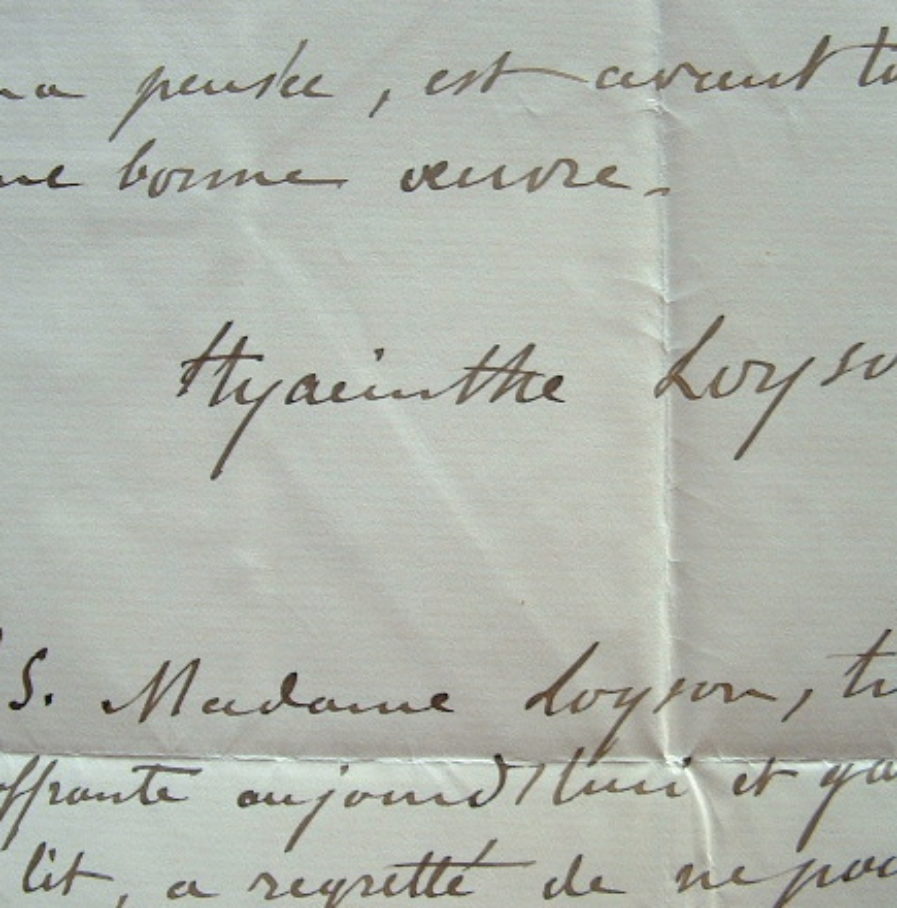 ma pensée, est avant to
ne bonne oeuvre.
Hyacinthe Loyso
S. Madame Loyson, tr
offrante aujourd'hui et ga
lit, a regretté de ne pou